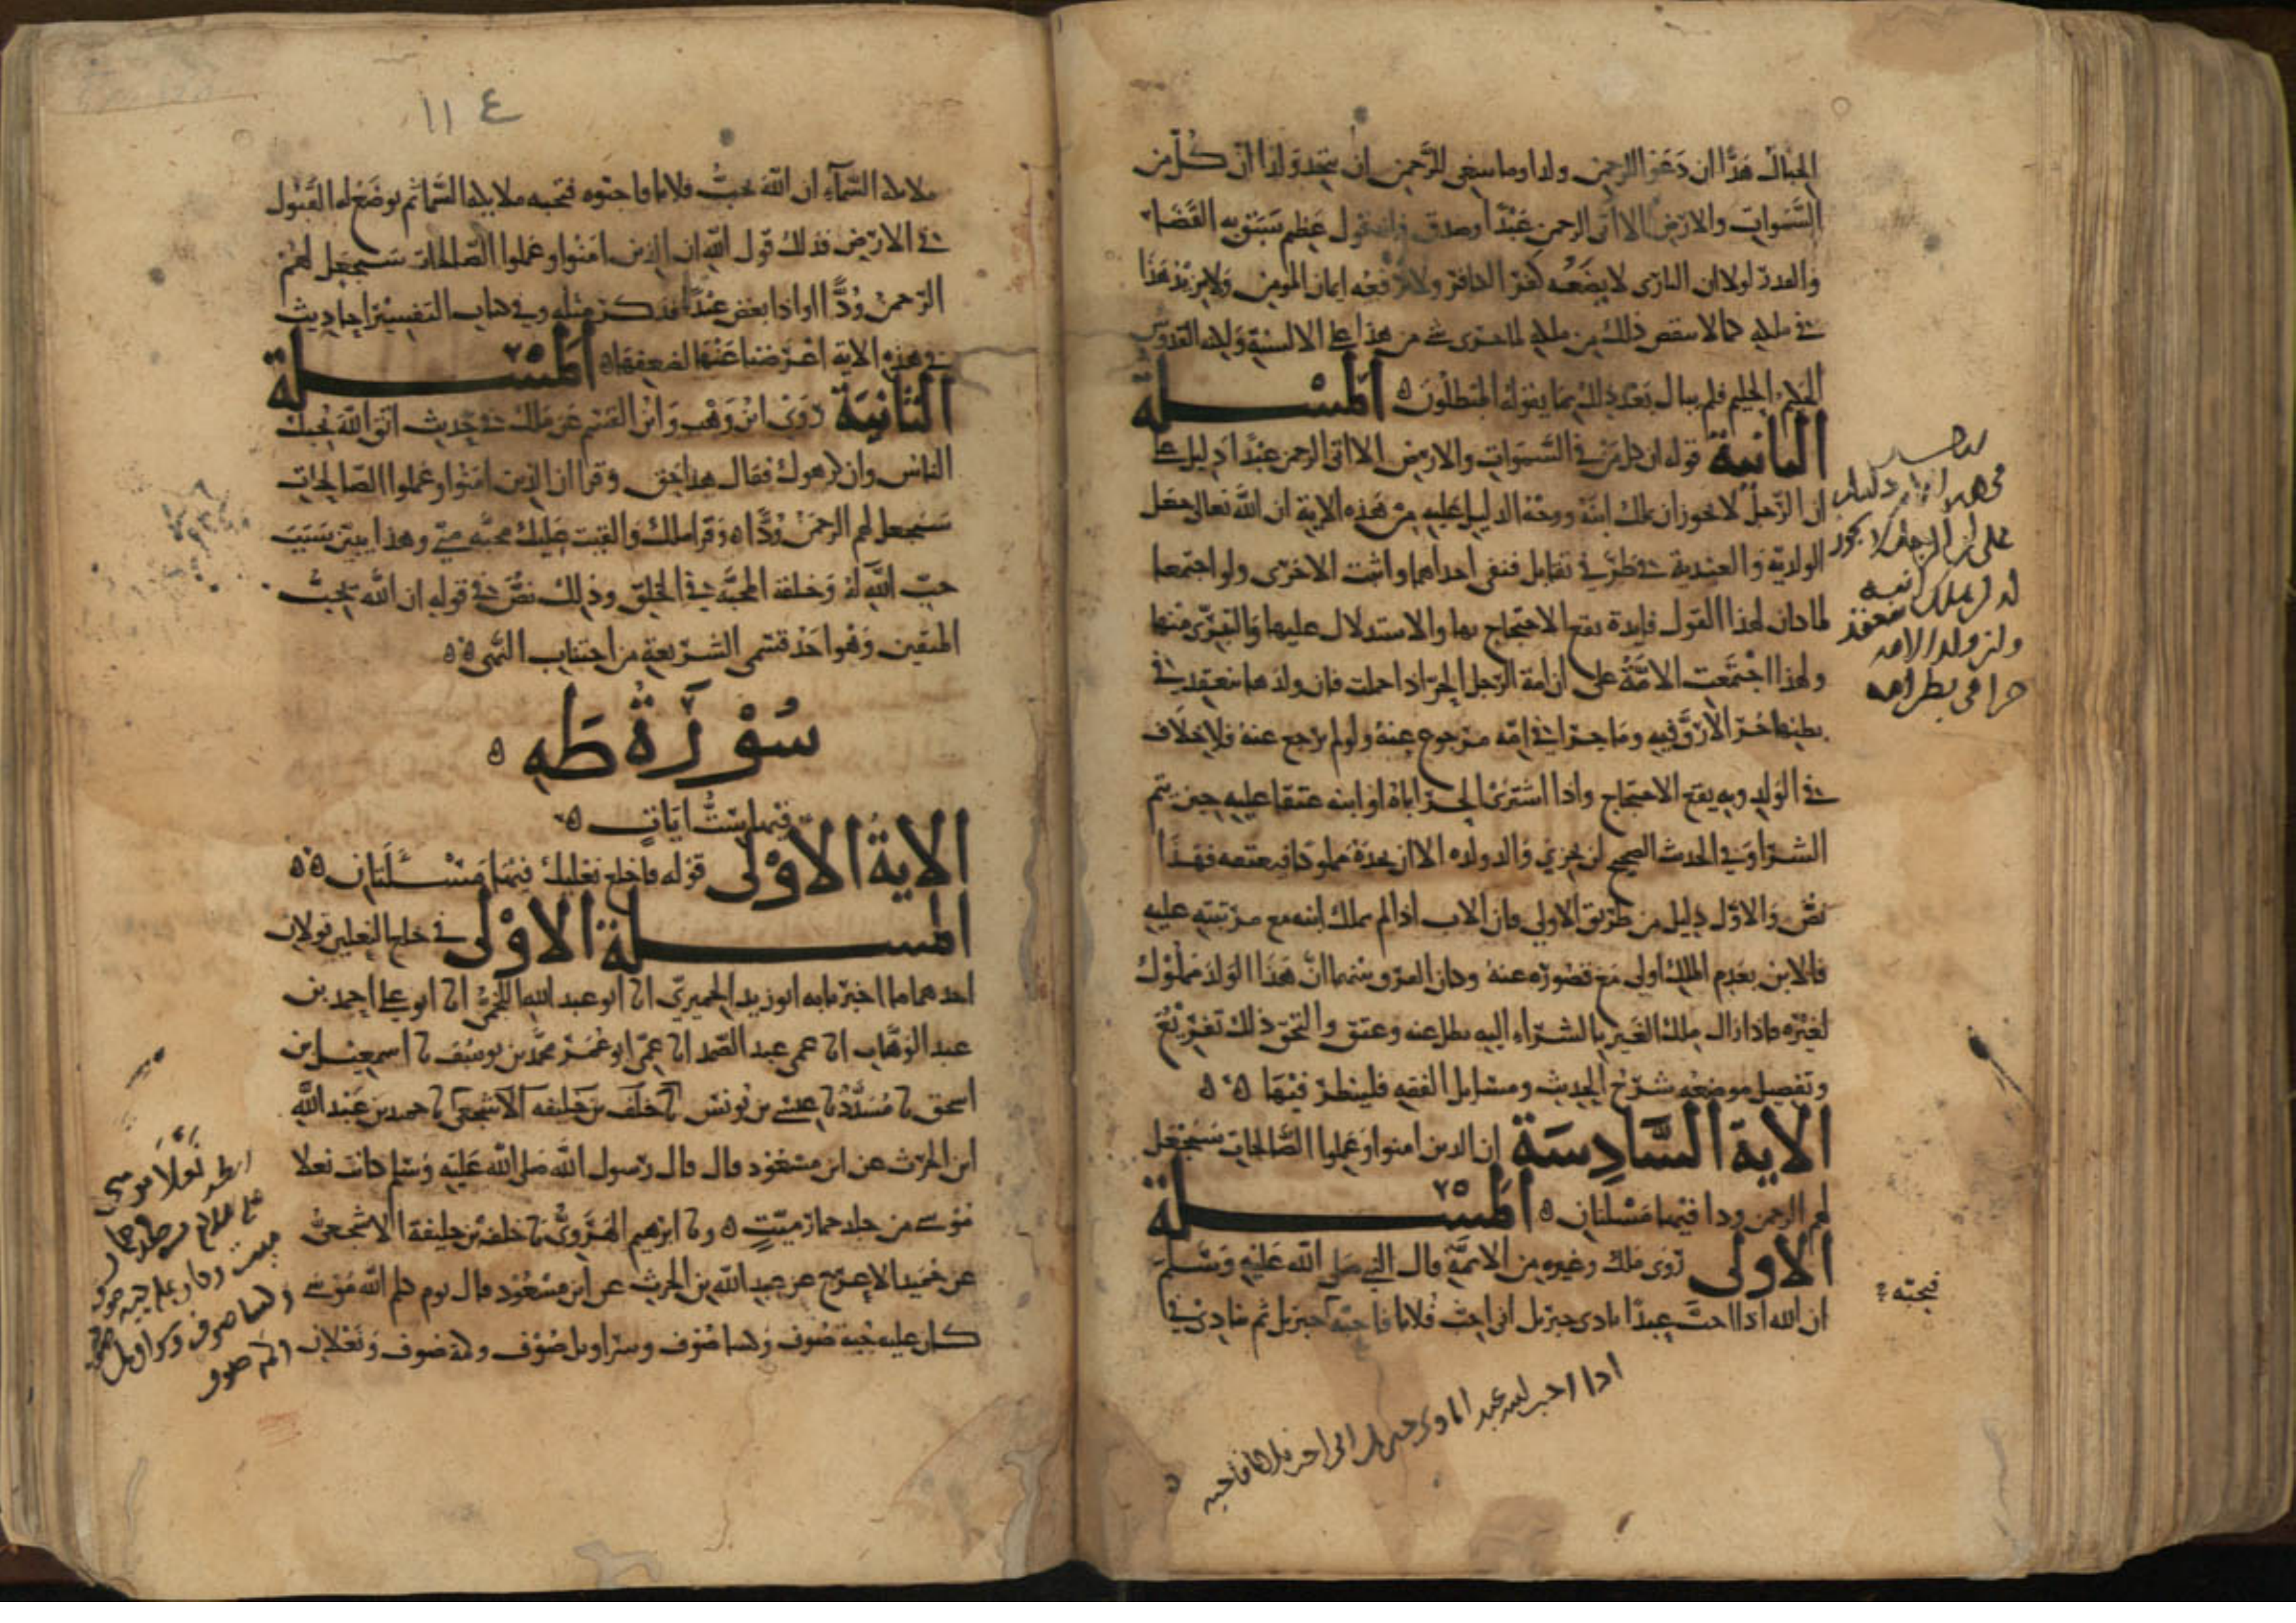 الجبال هدا ان دعوا للرحمن ولدا وما ينبغي للرحمن ان يتخذ ولدا ان كل من
السموات والارض الا اتى الرحمن عبدا وصدق فانه قول عظيم سبق به القضاء
والقدر لولا ان الباري لا يضعه كفر الكافر ولا يرفعه ايمان المومن ولا يزيد هذا
في ملكه كما لا ينقص ذلك من ملكه لما جرى شي من هذا على الالسنة ولكنه القدوس
الحكيم الحليم فلم يبال بعد ذلك بما يقوله المبطلون ه المسلة
الثانية قوله ان كل من في السموات والارض الا اتى الرحمن عبدا دليل على
ان الرجل لا يجوز ان يملك ابنه ووجه الدليل عليه من هذه الاية ان الله تعالى جعل
الولدية والعبدية في طرفي تقابل فنفى احداهما واثبت الاخرى ولو اجتمعا
لما كان لهذا القول فايدة يقع الاحتجاج بها والاستدلال عليها والتبري منها
ولهذا اجتمعت الامة على ان امة الرجل الحر اذا حملت فان ولدها ينعقد في
بطنها حرا لا رق فيه وما جرا في امه مرجوع عنه ولو لم يرجع عنه فلا خلاف
في الولد وبه يقع الاحتجاج واذا اشترى الحر اباه او ابنه عتقا عليه حين يتم
الشرا وفي الحدث الصحيح لن يجزي والد ولده الا ان يجده مملوكا فيعتقه فهذا
نص والاول دليل من طريق الاولى فان الاب اذا لم يملك ابنه مع مرتبته عليه
فالابن بعدم الملك اولى مع قصوره عنه وكان الفرق بينهما ان هذا الولد مملوك
لغيره فاذا زال ملك الغير بالشراء اليه بطل عنه وعتق والتحق ذلك تفريع
وتفصيل موضعه شرح الحديث ومسايل الفقه فلينظر فيها ه ه
الاية السادسة ان الدين امنوا وعملوا الصالحات سيجعل
لهم الرحمن ودا فيها مسلتان ه المسلة
الاولى روى ملك وغيره من الائمة قال النبي صلى الله عليه وسلم
ان الله اذا احب عبدا نادى جبريل اني احب فلانا فاحبه جبريل ثم ينادي في
الدليل
على ان الرجل لا يجوز
له ان يملك ابنه
وان ولد الامه
حرا في بطن امه
فيحبه
اذا احب الله عبدا نادى جبريل اني احب فلانا فاحبه
١١٤
ملايكة السماء ان الله يحب فلانا فاحبوه فتحبه ملايكة السما ثم يوضع له القبول
في الارض فذلك قول الله ان الذين امنوا وعملوا الصالحات سيجعل لهم
الرحمن ودا واذا ابغض عبدا فذكر مثله وفي كتاب التفسير احاديث
في هذه الاية اعرضنا عنها لضعفها ه المسلة
الثانية روى ابن وهب وابن القسم عن ملك في حديث اتق الله يحبك
الناس وان كرهوك فقال هذا حق وقرا ان الذين امنوا وعملوا الصالحات
سيجعل لهم الرحمن ودا ه وقرا ملك والقيت عليك محبة مني وهذا يبين سبب
حب الله له وخلقه المحبة في الخلق وذلك نص في قوله ان الله يحب
المتقين وهو احد قسمي الشريعة من اجتناب النهى ه ه
سورة طه ه
فيها ست ايات ه
الاية الاولى قوله فاخلع نعليك فيها مسلتان ه ه
المسلة الاولى في خلع النعلين قولان
احدهما ما اخبرنا به ابو زيد الحميري انا ابو عبد الله اللخمي انا ابو علي احمد بن
عبد الوهاب انا عمي عبد الصمد انا عمي ابو عمر محمد بن يوسف نا اسمعيل بن
اسحق نا مسدد نا عيسى بن يونس نا خلف بن خليفه الاشجعي نا حميد بن عبد الله
ابن الحرث عن ابن مسعود قال قال رسول الله صلى الله عليه وسلم كانت نعلا
موسى من جلد حمار ميت ه ونا ابرهيم الهروي نا خلف بن خليفة الاشجعي
عن حميد الاعرج عن عبد الله بن الحرث عن ابن مسعود قال يوم كلم الله موسى
كان عليه جبة صوف وكسا صوف وسراويل صوف وكمة صوف ونعلان
انظر نعلا موسى
ميت وكان عليه جبه صوف
وكسا صوف وسراويل